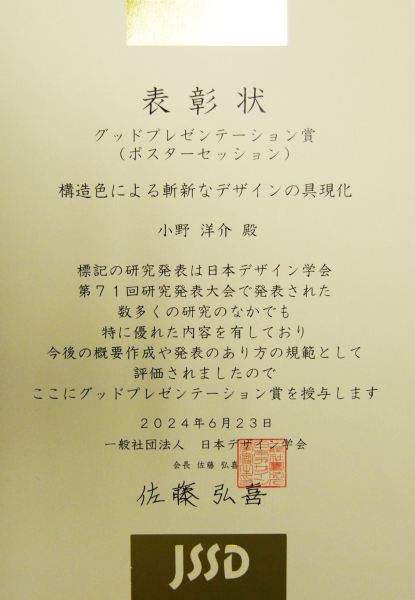 表彰状
グッドプレゼンテーション賞
（ポスターセッション）
構造色による斬新なデザインの具現化
小野 洋介 殿
標記の研究発表は日本デザイン学会
第７１回研究発表大会で発表された
数多くの研究のなかでも
特に優れた内容を有しており
今後の概要作成や発表のあり方の規範として
評価されましたので
ここにグッドプレゼンテーション賞を授与します
２０２４年６月２３日
一般社団法人 日本デザイン学会
会長 佐藤 弘喜
佐藤 弘喜
JSSD